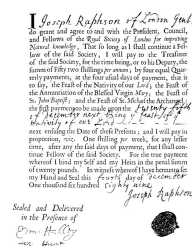 I Joseph Raphson of London Gent
do grant and agree to and with the President, Council,
and Fellows of the Royal Society of London for improving
Natural knowledge, That so long as I shall continue a Fel-
low of the said Society, I will pay to the Treasurer
of the said Society, for the time being, or to his Deputy, the
summ of Fifty two shillings per annum; by four equal Quar-
terly payments, at the four usual days of payment, that is
to say, the Feast of the Nativity of our Lord; the Feast of
the Annunciation of the Blessed Virgin Mary; the Feast of
St. John Baptist; and the Feast of St. Michael the Archangel;
the first payment to be made upon the twenty fifth
of december next being ye feast of ye
Nativity of our Lord
next ensuing the Date of these Presents; and I will pay in
proportion, viz. One shilling per week, for any lesser
time, after any the said days of payment, that I shall con-
tinue Fellow of the said Society. For the true payment
whereof I bind my self and my Heirs in the penal summ
of twenty pounds. In witness whereof I have hereunto set
my Hand and Seal this fourth day of december
One thousand six hundred Eighty nine
Joseph Raphson
Sealed and Delivered
in the Presence of
Edm: Halley